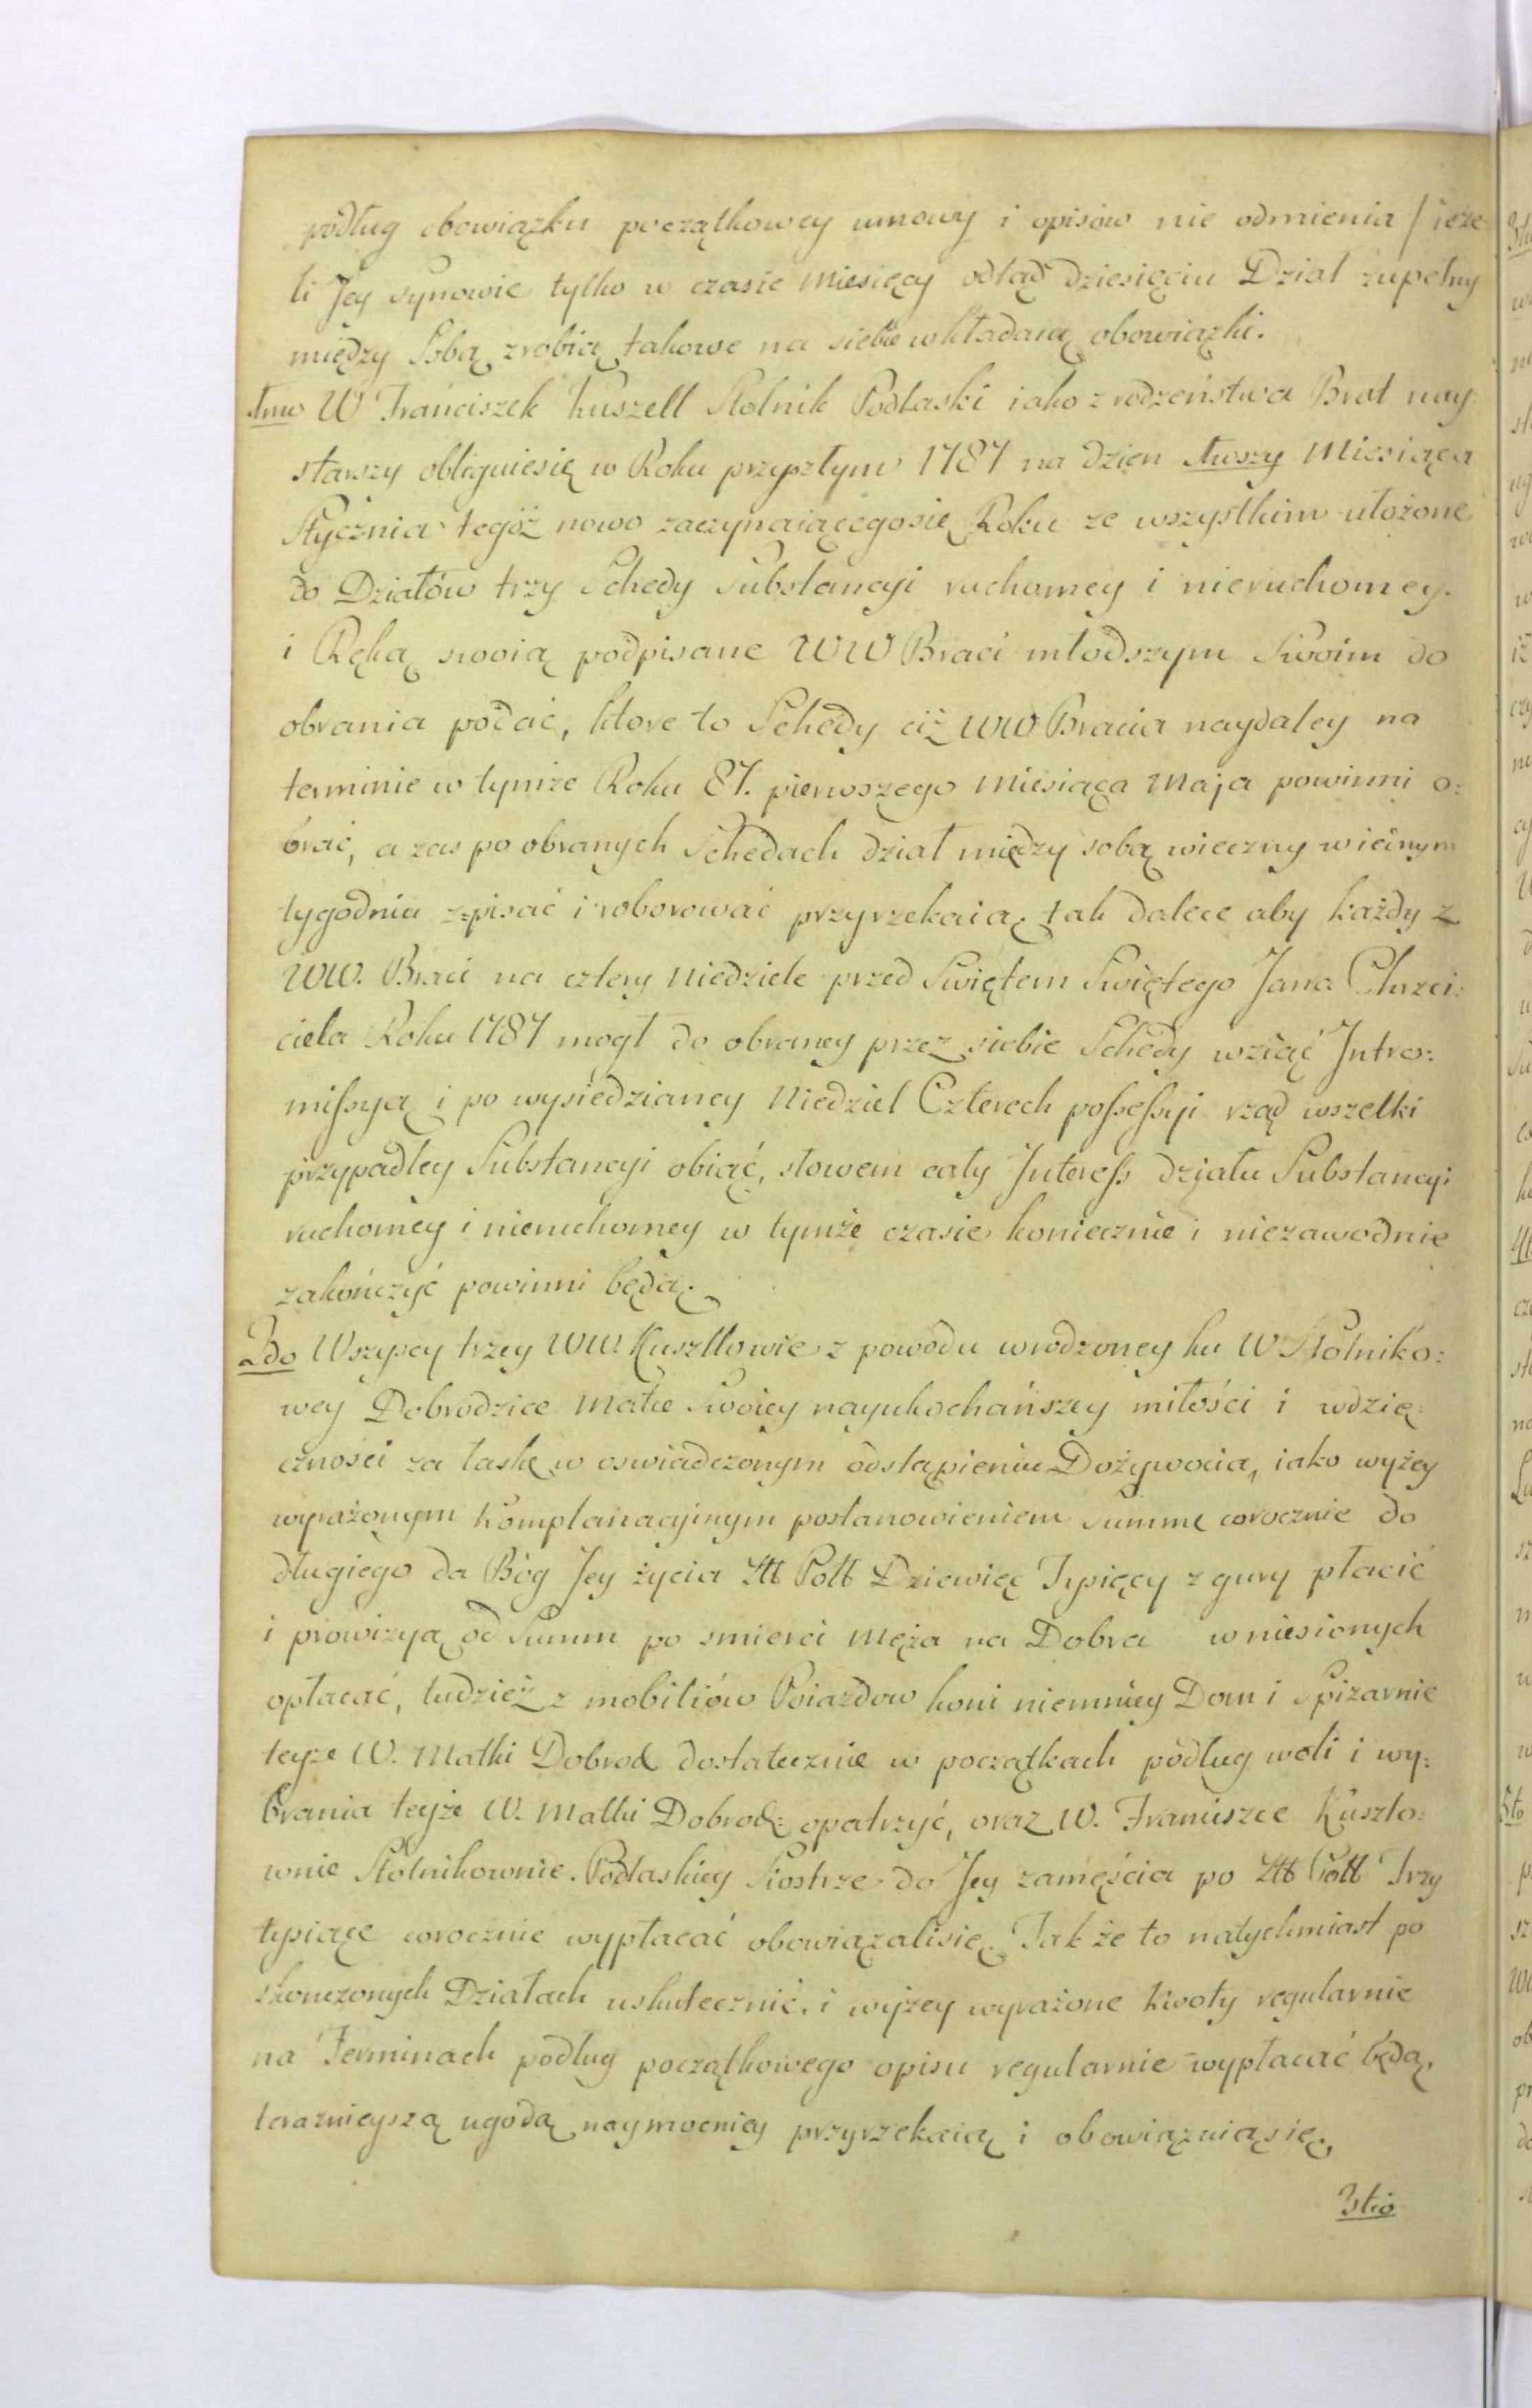 podług obowiązku początkowey umowy i opisów nie odmienia / ieże
li Jey synowie tylko w czasie Miesięcy odtąd dziesięciu Dział zupełny
między Sobą zrobią takowe na siebie wkładaią obowiązki.
1mo W Franciszek Kuszell Stolnik Podlaski iako z rodzeństwa Brat nay:
starszy obliguiesię w Roku przyszłym 1787 na dzien 1wszy Miesiąca
Stycznia tegóż nowo zaczynaiącegosię Roku ze wszystkim ułożone
do Działów trzy Schedy Substancyi ruchomey i nieruchomey.
i Ręką swoią podpisane WW Braci młodszym Swoim do
obrania podać, ktore to Schedy ciż WW Bracia naydaley na
terminie w tymże Roku 87. pierwszego Miesiąca Maja powinni o:
brać, a zas po obranych Schedach dział między sobą wieczny w iednym
tygodniu z=pisać i roborować przyrzekaią, tak dalece aby każdy z
WW. Braci na cztery Niedziele przed Swiętem Swiętego Jana Chrzci:
ciela Roku 1787 mogł do obraney przez siebie Schedy wziąć Intro:
missyą i po wysiedzianey Niedziel Czterech possessyi rząd wszelki
przypadłey Substancyi obiąć, słowem cały Interess działu Substancyi
ruchomey i nieruchomey w tymże czasie koniecznie i niezawodnie
zakończyć powinni będą.
2do Wszyscy trzey WW. Kuszllowie z powodu wrodzoney ku W Stolniko:
wey Dobrodzice Matce Swoiey nayukochańszey miłości i wdzię:
czności za łaskę w oswiadczonym odstąpieniu Dożywocia, iako wyżey
wyrażonym Komplanacyinym postanowieniem Summę corocznie do
długiego da Bóg Jey życia Złł Poll Dziewięć Tysięcy z gury płacić
i prowizyą od Summ po smierci Męża na Dobra wniesionych
opłacać, tudzież z mobiliów Poiazdow koni niemniey Dom i Spiżarnie
teyże W. Matki Dobrodz dostatecznie w początkach podług woli i wy:
brania teyże W. Matki Dobrodz: opatrzyć, oraz W. Franciszce Kuszlo:
wnie Stolnikownie. Podlaskiey Siostrze do Jey zamęścia po Złł Poll Trzy
tysiące corocznie wypłacać obowiązalisię. Jak że to natychmiast po
skonczonych Działach uskutecznić, i wyżey wyrażone Kwoty regularnie
na Terminach podług początkowego opisu regularnie wypłacać będą,
teraznieyszą ugodą naymocniey przyrzekaią i obowiązuiąsię.
3tio